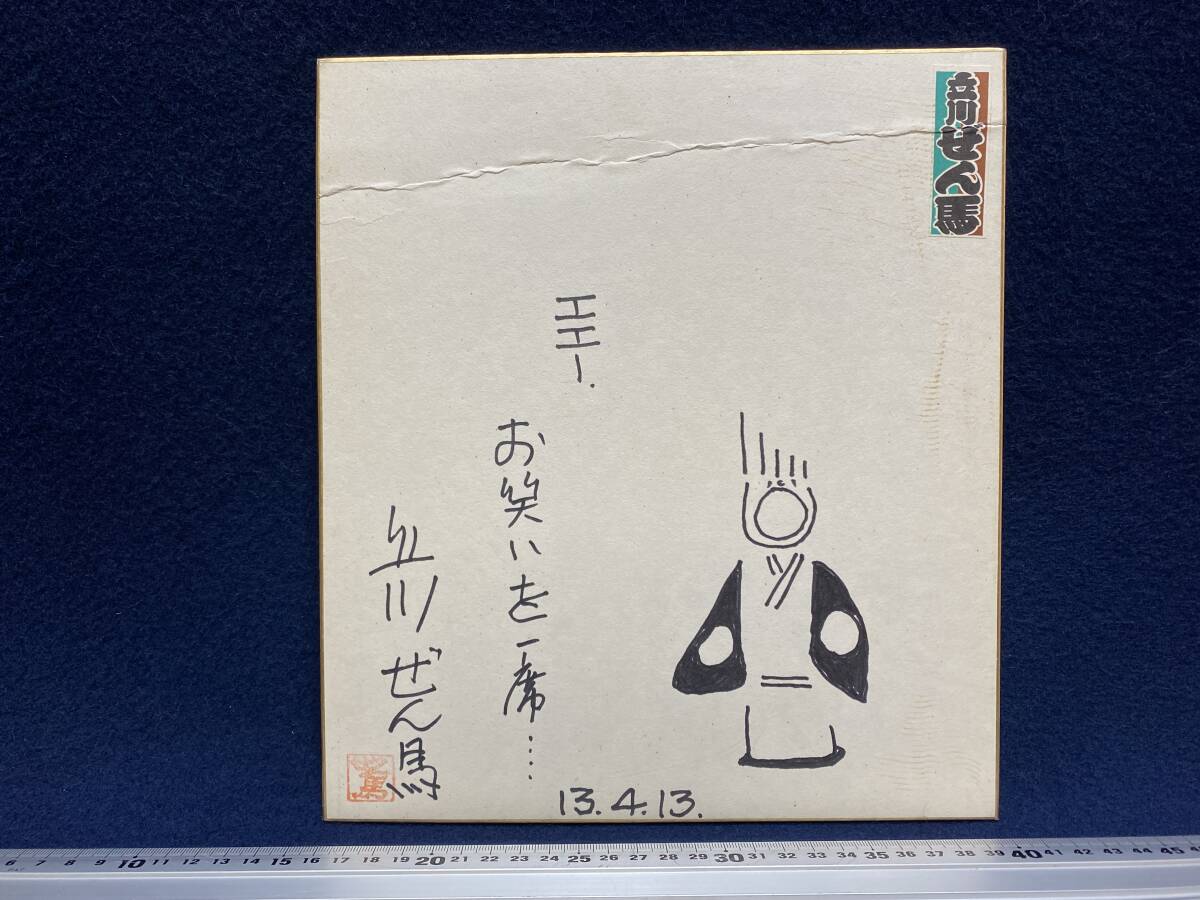 立川ぜん馬
エエー.
お笑いを一席……
立川ぜん馬
13.4.13.
6 7 8 9 10 11 12 13 14 15 16 17 18 19 20 21 22 23 24 25 26 27 28 29 30 31 32 33 34 35 36 37 38 39 40 41 42 43 44 45